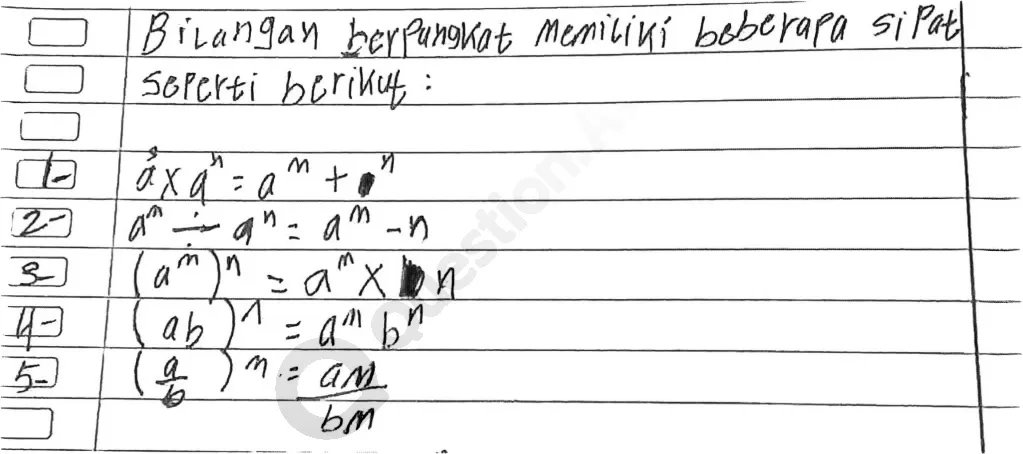 Bilangan berpangkat memiliki beberapa sipat
seperti berikut :
1- a × aⁿ = aᵐ + ⁿ
2- aᵐ ÷ aⁿ = aᵐ - n
3- (aᵐ)ⁿ = aᵐ × n
4- (ab)ⁿ = aᵐ bⁿ
5- (a/b)ᵐ = am/bm